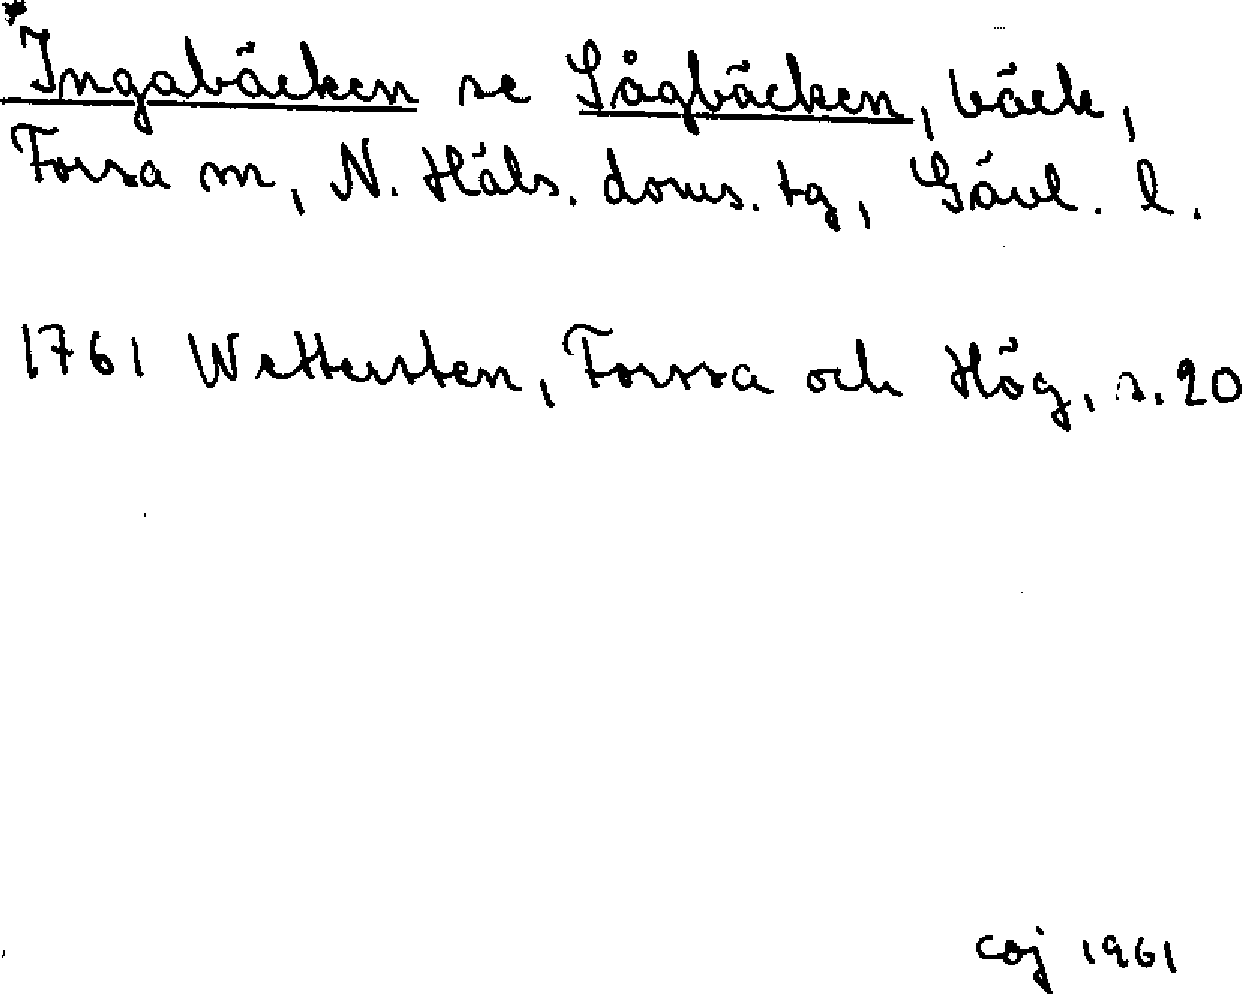 Ingabäcken se Sågbäcken, bäck,
Forsa sn, N. Häls. doms. tg, Gävl. l.
1761 Wettersten, Forssa och Hög, s. 20
coj 1961